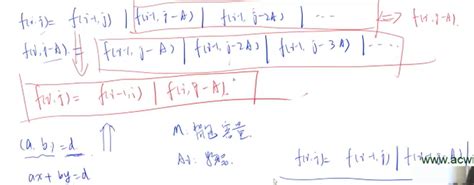 f(i,j) = f(i-1,j) | f(i-1, j-A) | f(i-1, j-2A) | ... <=> f(i, j-A).
f(i,j-A) = f(i-1, j-A) | f(i-1, j-2A) | f(i-1, j-3A) | ....
f(i,j) = f(i-1,j) | f(i, j-A).
(a, b) = d.
ax + by = d
M. 背包容量.
f(i,j) = f(i-1,j) |
www.acwi